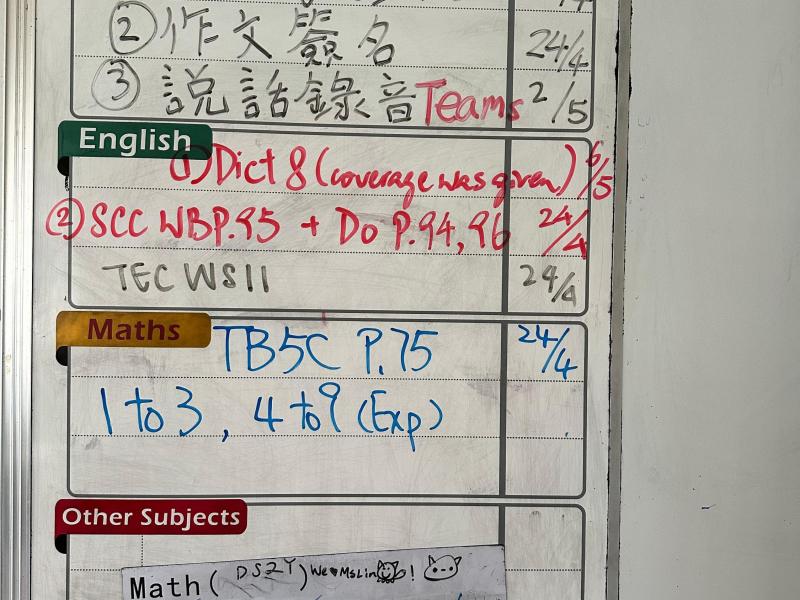 ② 作文簽名 24/4
③ 説話錄音 Teams 2/5
English
① Dict 8 (coverage was given) 6/5
② SCC WB P.95 + Do P.94, 96 24/4
TEC WS11 24/4
Maths
TB5C P.75 24/4
1 to 3, 4 to 9 (Exp)
Other Subjects
Math( DS2Y ) We♥MsLin !